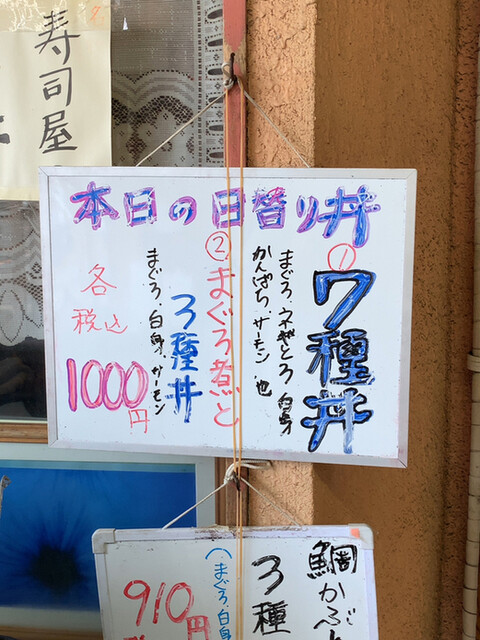 寿司屋
本日の日替り丼
①7種丼
まぐろ、ネギとろ 白身
かんぱち、サーモン 他
②まぐろ煮と
3種丼
まぐろ、白身、サーモン
各
税込
1000円
鯛かぶと
3種
(まぐろ、白身
910円